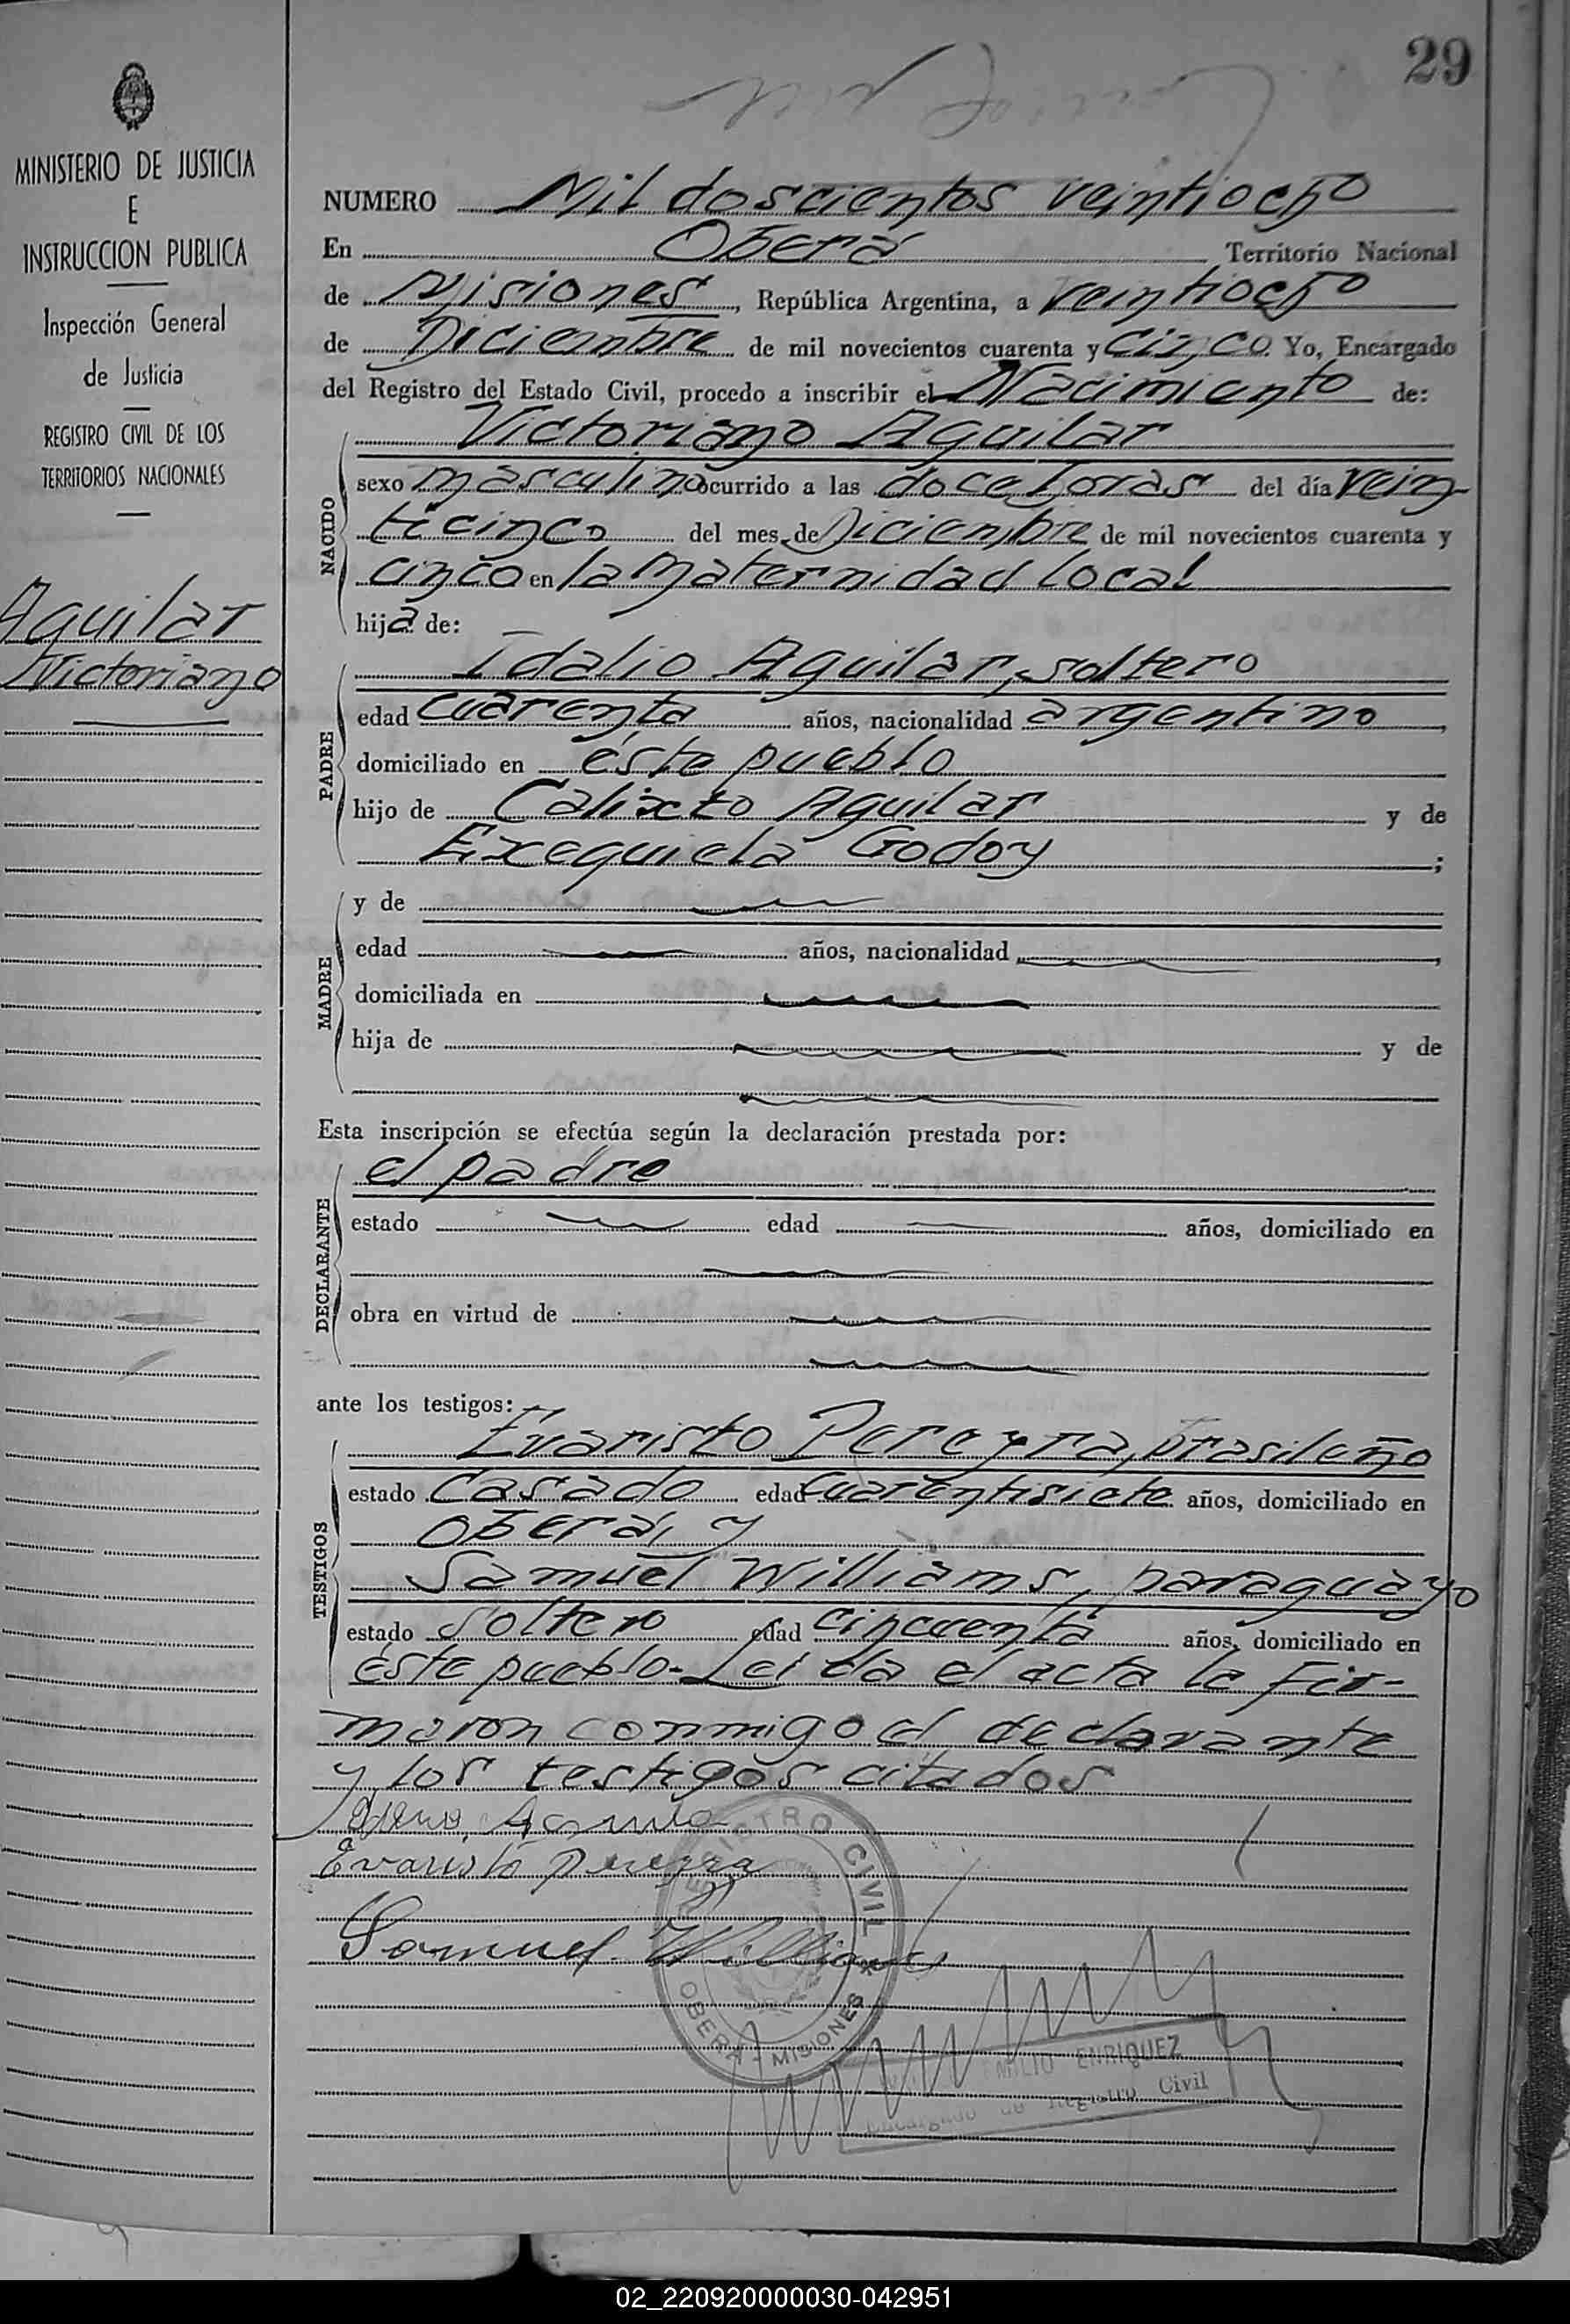 29
MINISTERIO DE JUSTICIA
E
INSTRUCCION PUBLICA
Inspección General
de Justicia
REGISTRO CIVIL DE LOS
TERRITORIOS NACIONALES
Aguilar
Victoriano
NUMERO Mil doscientos veintiocho
En Oberá Territorio Nacional
de Misiones, República Argentina, a veintiocho
de Diciembre de mil novecientos cuarenta y cinco. Yo, Encargado
del Registro del Estado Civil, procedo a inscribir el Nacimiento de:
NACIDO
Victoriano Aguilar
sexo masculino ocurrido a las doce horas del día vein
ticinco del mes de Diciembre de mil novecientos cuarenta y
cinco en la Maternidad local
hija de:
PADRE
Idalio Aguilar, soltero
edad cuarenta años, nacionalidad argentino
domiciliado en éste pueblo
hijo de Calixto Aguilar y de
Exequiela Godoy ;
MADRE
y de
edad años, nacionalidad ,
domiciliada en
hija de y de
Esta inscripción se efectúa según la declaración prestada por:
DECLARANTE
el padre
estado edad años, domiciliado en
obra en virtud de
ante los testigos:
TESTIGOS
Evaristo Pereyra, brasileño
estado Casado edad cuarentisiete años, domiciliado en
Oberá, y
Samuel Williams, paraguayo
estado soltero edad cincuenta años, domiciliado en
éste pueblo.- Leida el acta la fir-
maron conmigo el declarante
y los testigos citados
Evaristo Pereyra
Samuel Williams
REGISTRO CIVIL
OBERA - MISIONES
EMILIO ENRIQUEZ
Encargado de Registro Civil
02_220920000030-042951